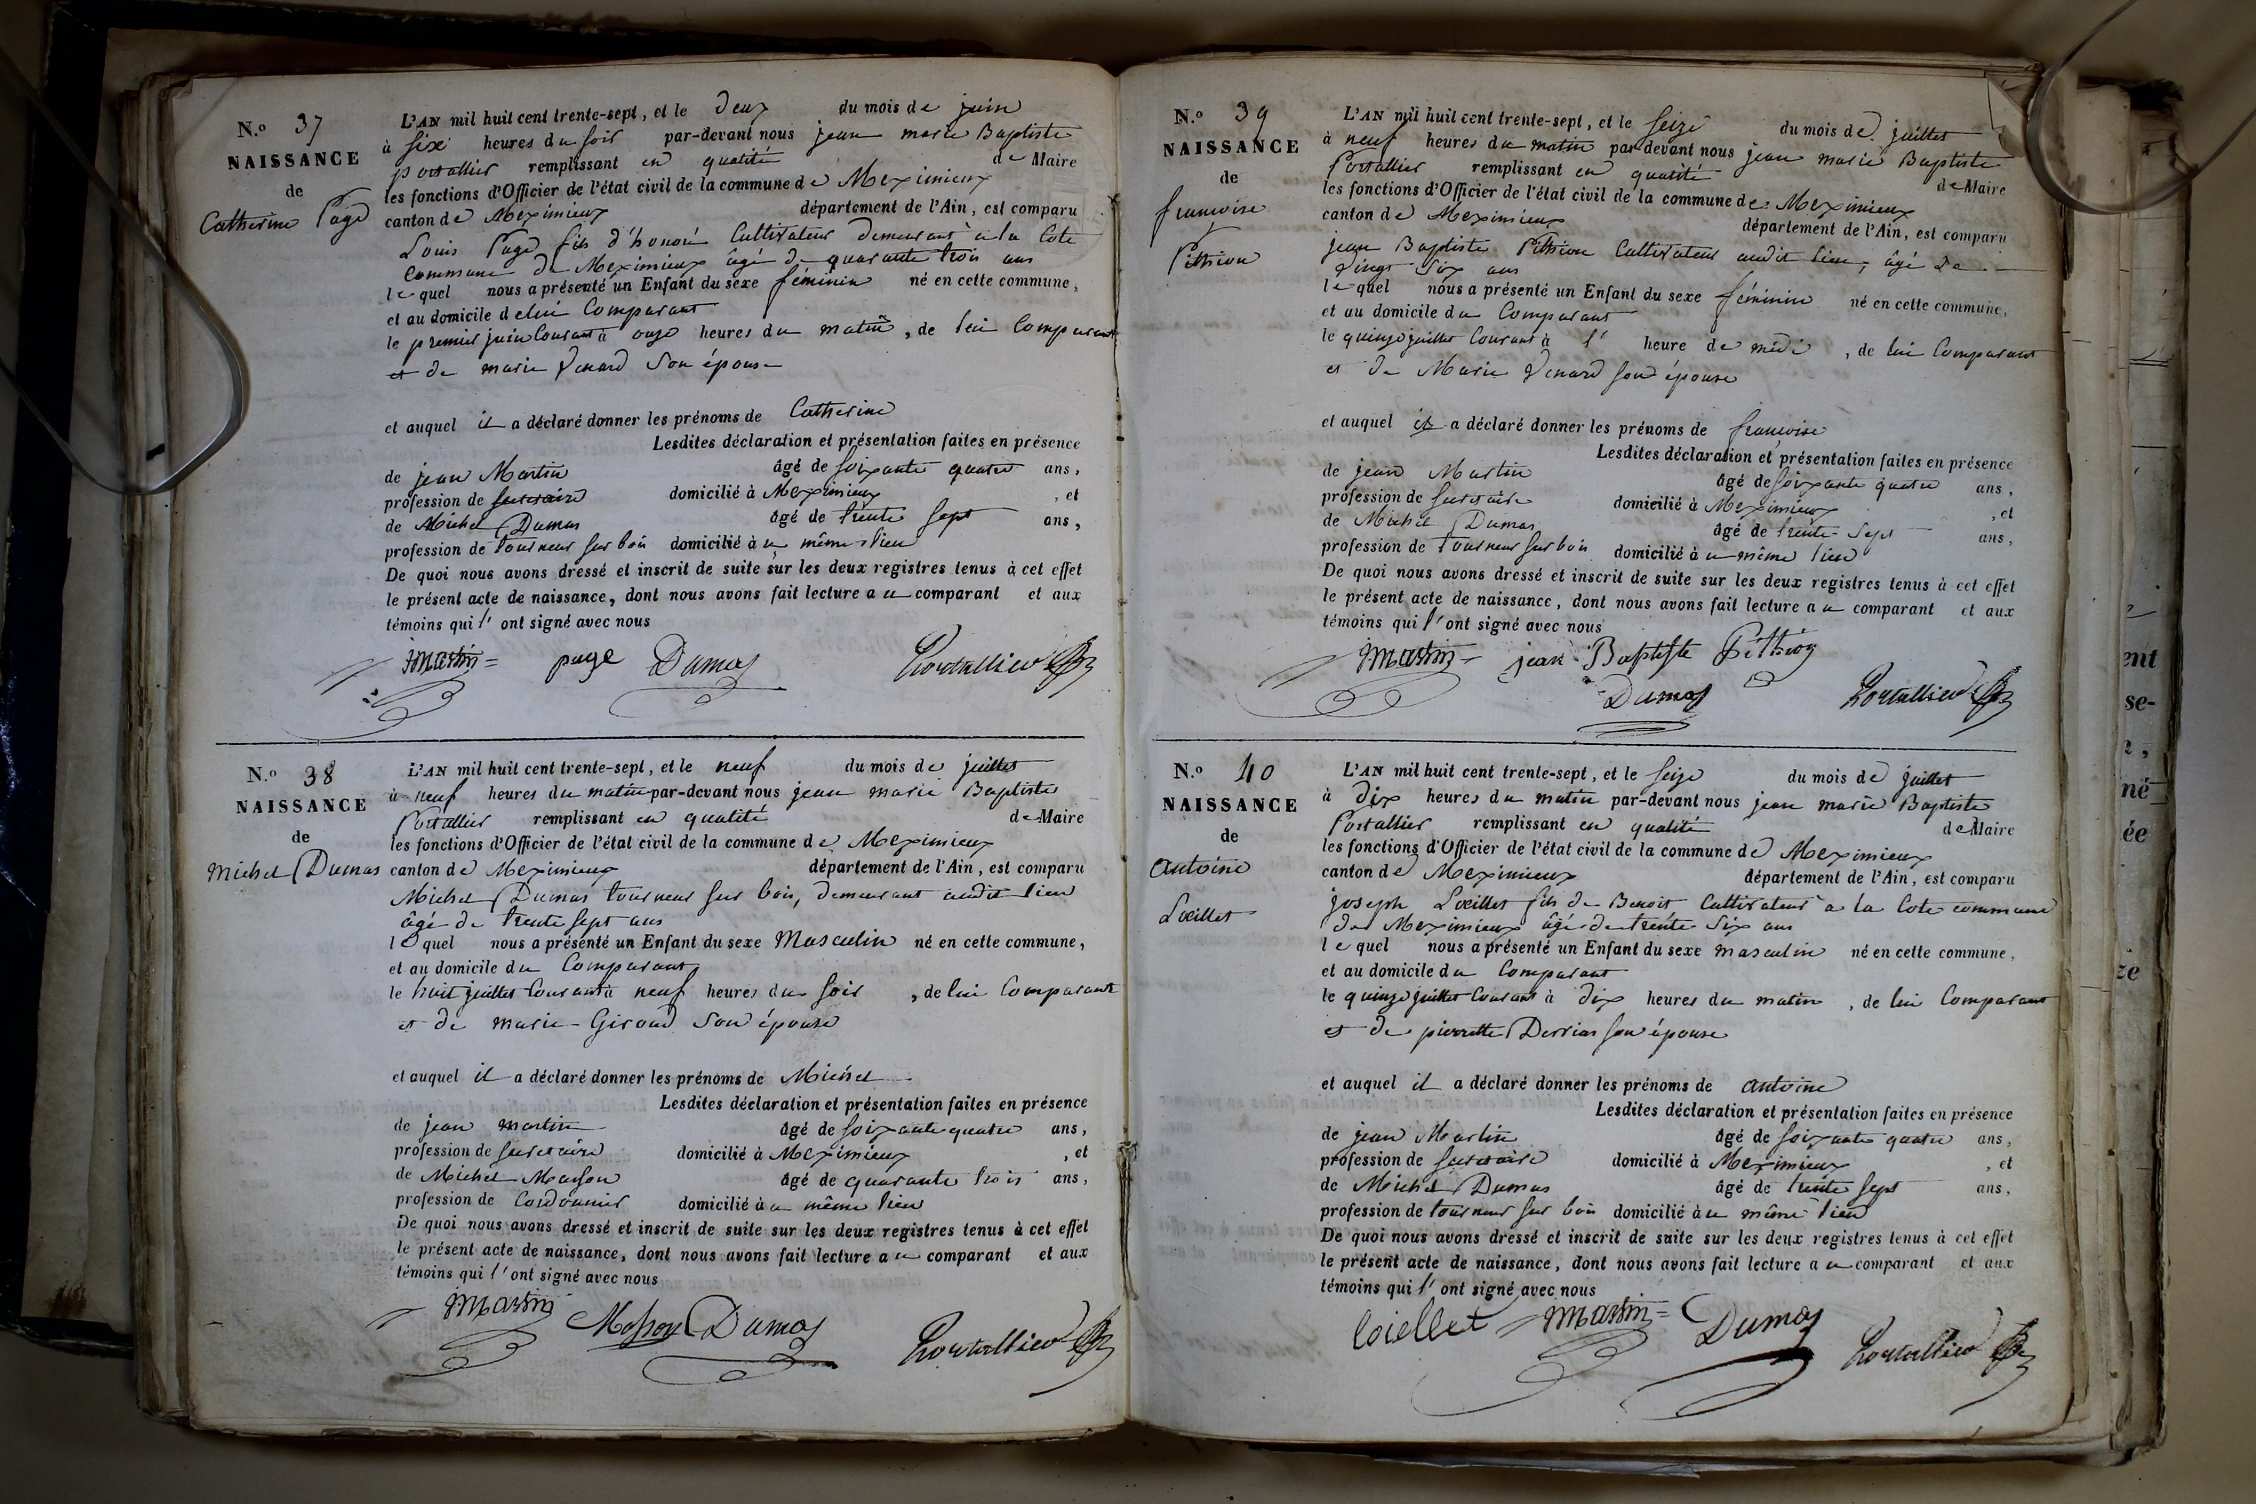 N.o 37
NAISSANCE
de
Catherine Page
L'AN mil huit cent trente-sept, et le deux du mois de juin
à six heures du soir par-devant nous jean marie Baptiste
portallier remplissant en qualité de Maire
les fonctions d'Officier de l'état civil de la commune de Meximieux
canton de Meximieux département de l'Ain, est comparu
Louis Page fils d'honoré Cultivateur demeurant à la Cote
commune de Meximieux âgé de quarante trois ans
lequel nous a présenté un Enfant du sexe féminin né en cette commune,
et au domicile de lui Comparant
le premier juin Courant à onze heures du matin, de lui Comparant
et de marie Venard son épouse
et auquel il a déclaré donner les prénoms de Catherine
Lesdites déclaration et présentation faites en présence
de jean Martin âgé de soixante quatre ans,
profession de secretaire domicilié à Meximieux, et
de Michel Dumas âgé de trente sept ans,
profession de tourneur sur bois domicilié à u même lieu
De quoi nous avons dressé et inscrit de suite sur les deux registres tenus à cet effet
le présent acte de naissance, dont nous avons fait lecture a u comparant et aux
témoins qui l'ont signé avec nous
jmartin page Dumas Portallier
N.o 38
NAISSANCE
de
Michel Dumas
L'AN mil huit cent trente-sept, et le neuf du mois de juillet
à neuf heures du matin par-devant nous jean marie Baptiste
Portallier remplissant en qualité de Maire
les fonctions d'Officier de l'état civil de la commune de Meximieux
canton de Meximieux département de l'Ain, est comparu
Michel Dumas tourneur sur bois, demeurant audit lieu
âgé de trente sept ans
lequel nous a présenté un Enfant du sexe Masculin né en cette commune,
et au domicile du Comparant
le huit juillet Courant à neuf heures du soir, de lui Comparant
et de marie Giroud son épouse
et auquel il a déclaré donner les prénoms de Michel
Lesdites déclaration et présentation faites en présence
de jean martin âgé de soixante quatre ans,
profession de secretaire domicilié à Meximieux, et
de Michel Masson âgé de quarante trois ans,
profession de Cordonnier domicilié à u même lieu
De quoi nous avons dressé et inscrit de suite sur les deux registres tenus à cet effet
le présent acte de naissance, dont nous avons fait lecture a u comparant et aux
témoins qui l'ont signé avec nous
jmartin Masson Dumas Portallier
N.o 39
NAISSANCE
de
françoise
Pithion
L'AN mil huit cent trente-sept, et le seize du mois de juillet
à neuf heures du matin par-devant nous jean marie Baptiste
Portallier remplissant en qualité de Maire
les fonctions d'Officier de l'état civil de la commune de Meximieux
canton de Meximieux département de l'Ain, est comparu
jean Baptiste Pithion Cultivateur audit lieu, âgé de
vingt six ans
lequel nous a présenté un Enfant du sexe féminin né en cette commune,
et au domicile du Comparant
le quinze juillet Courant à l' heure de midi, de lui Comparant
et de Marie Venard son épouse
et auquel il a déclaré donner les prénoms de françoise
Lesdites déclaration et présentation faites en présence
de jean Martin âgé de soixante quatre ans,
profession de secretaire domicilié à Meximieux, et
de Michel Dumas âgé de trente sept ans,
profession de tourneur sur bois domicilié à u même lieu
De quoi nous avons dressé et inscrit de suite sur les deux registres tenus à cet effet
le présent acte de naissance, dont nous avons fait lecture a u comparant et aux
témoins qui l'ont signé avec nous
jmartin jean Baptiste Pithion
Dumas Portallier
N.o 40
NAISSANCE
de
antoine
Loeillet
L'AN mil huit cent trente-sept, et le seize du mois de juillet
à dix heures du matin par-devant nous jean marie Baptiste
Portallier remplissant en qualité de Maire
les fonctions d'Officier de l'état civil de la commune de Meximieux
canton de Meximieux département de l'Ain, est comparu
joseph Loeillet fils de Benoit Cultivateur a la Cote commune
de Meximieux âgé de trente six ans
lequel nous a présenté un Enfant du sexe masculin né en cette commune,
et au domicile du Comparant
le quinze juillet Courant à dix heures du matin, de lui Comparant
et de pierrette Derrias son épouse
et auquel il a déclaré donner les prénoms de antoine
Lesdites déclaration et présentation faites en présence
de jean Martin âgé de soixante quatre ans,
profession de secretaire domicilié à Meximieux, et
de Michel Dumas âgé de trente sept ans,
profession de tourneur sur bois domicilié à u même lieu
De quoi nous avons dressé et inscrit de suite sur les deux registres tenus à cet effet
le présent acte de naissance, dont nous avons fait lecture a u comparant et aux
témoins qui l'ont signé avec nous
loiellet jmartin Dumas Portallier
ent
se-
né
ée